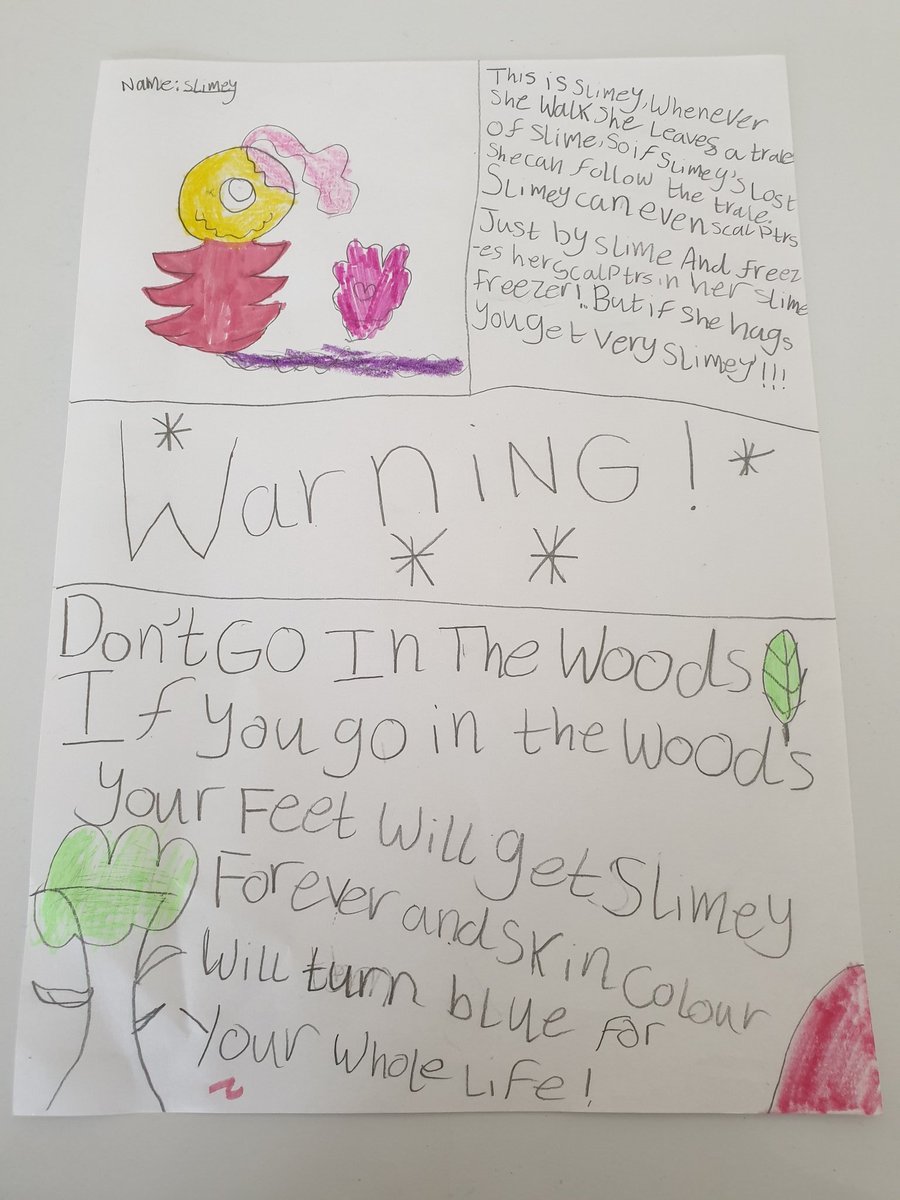 Name: Slimey
This is Slimey, Whenever
She Walk She Leaves a trale
of Slime, So if Slimey's Lost
She can follow the trale.
Slimey can even scalptrs
Just by slime And freez
-es her scalptrs in her slime
freezer! But if she hugs
you get very slimey!!!
Warning!
Don't Go In The Woods
If you go in the woods
your Feet will get Slimey
Forever and skin colour
Will turn blue for
Your whole Life!